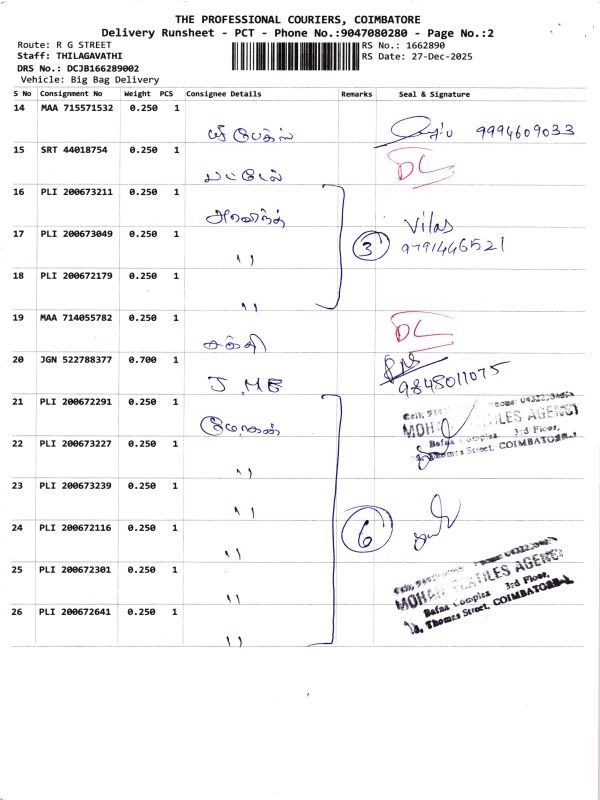 THE PROFESSIONAL COURIERS, COIMBATORE
Delivery Runsheet - PCT - Phone No.:9047080280 - Page No.:2
Route: R G STREET RS No.: 1662890
Staff: THILAGAVATHI RS Date: 27-Dec-2025
DRS No.: DCJB166289002
Vehicle: Big Bag Delivery
S No Consignment No Weight PCS Consignee Details Remarks Seal & Signature
14 MAA 715571532 0.250 1
9994609033
15 SRT 44018754 0.250 1
பட்டேல் DC
16 PLI 200673211 0.250 1
அரவிந்த் Vilas
17 PLI 200673049 0.250 1 3 9791446521
"
18 PLI 200672179 0.250 1
"
19 MAA 714055782 0.250 1
சக்தி DC
20 JGN 522788377 0.700 1
J.M.E 9845011075
21 PLI 200672291 0.250 1
மோகன் MOHAN TEXTILES AGENCY
Bafna Complex 3rd Floor,
Thomas Street, COIMBATORE-1
22 PLI 200673227 0.250 1
"
23 PLI 200673239 0.250 1
"
24 PLI 200672116 0.250 1 6
"
25 PLI 200672301 0.250 1
" MOHAN TEXTILES AGENCY
Bafna Complex 3rd Floor,
Thomas Street, COIMBATORE-1
26 PLI 200672641 0.250 1
"